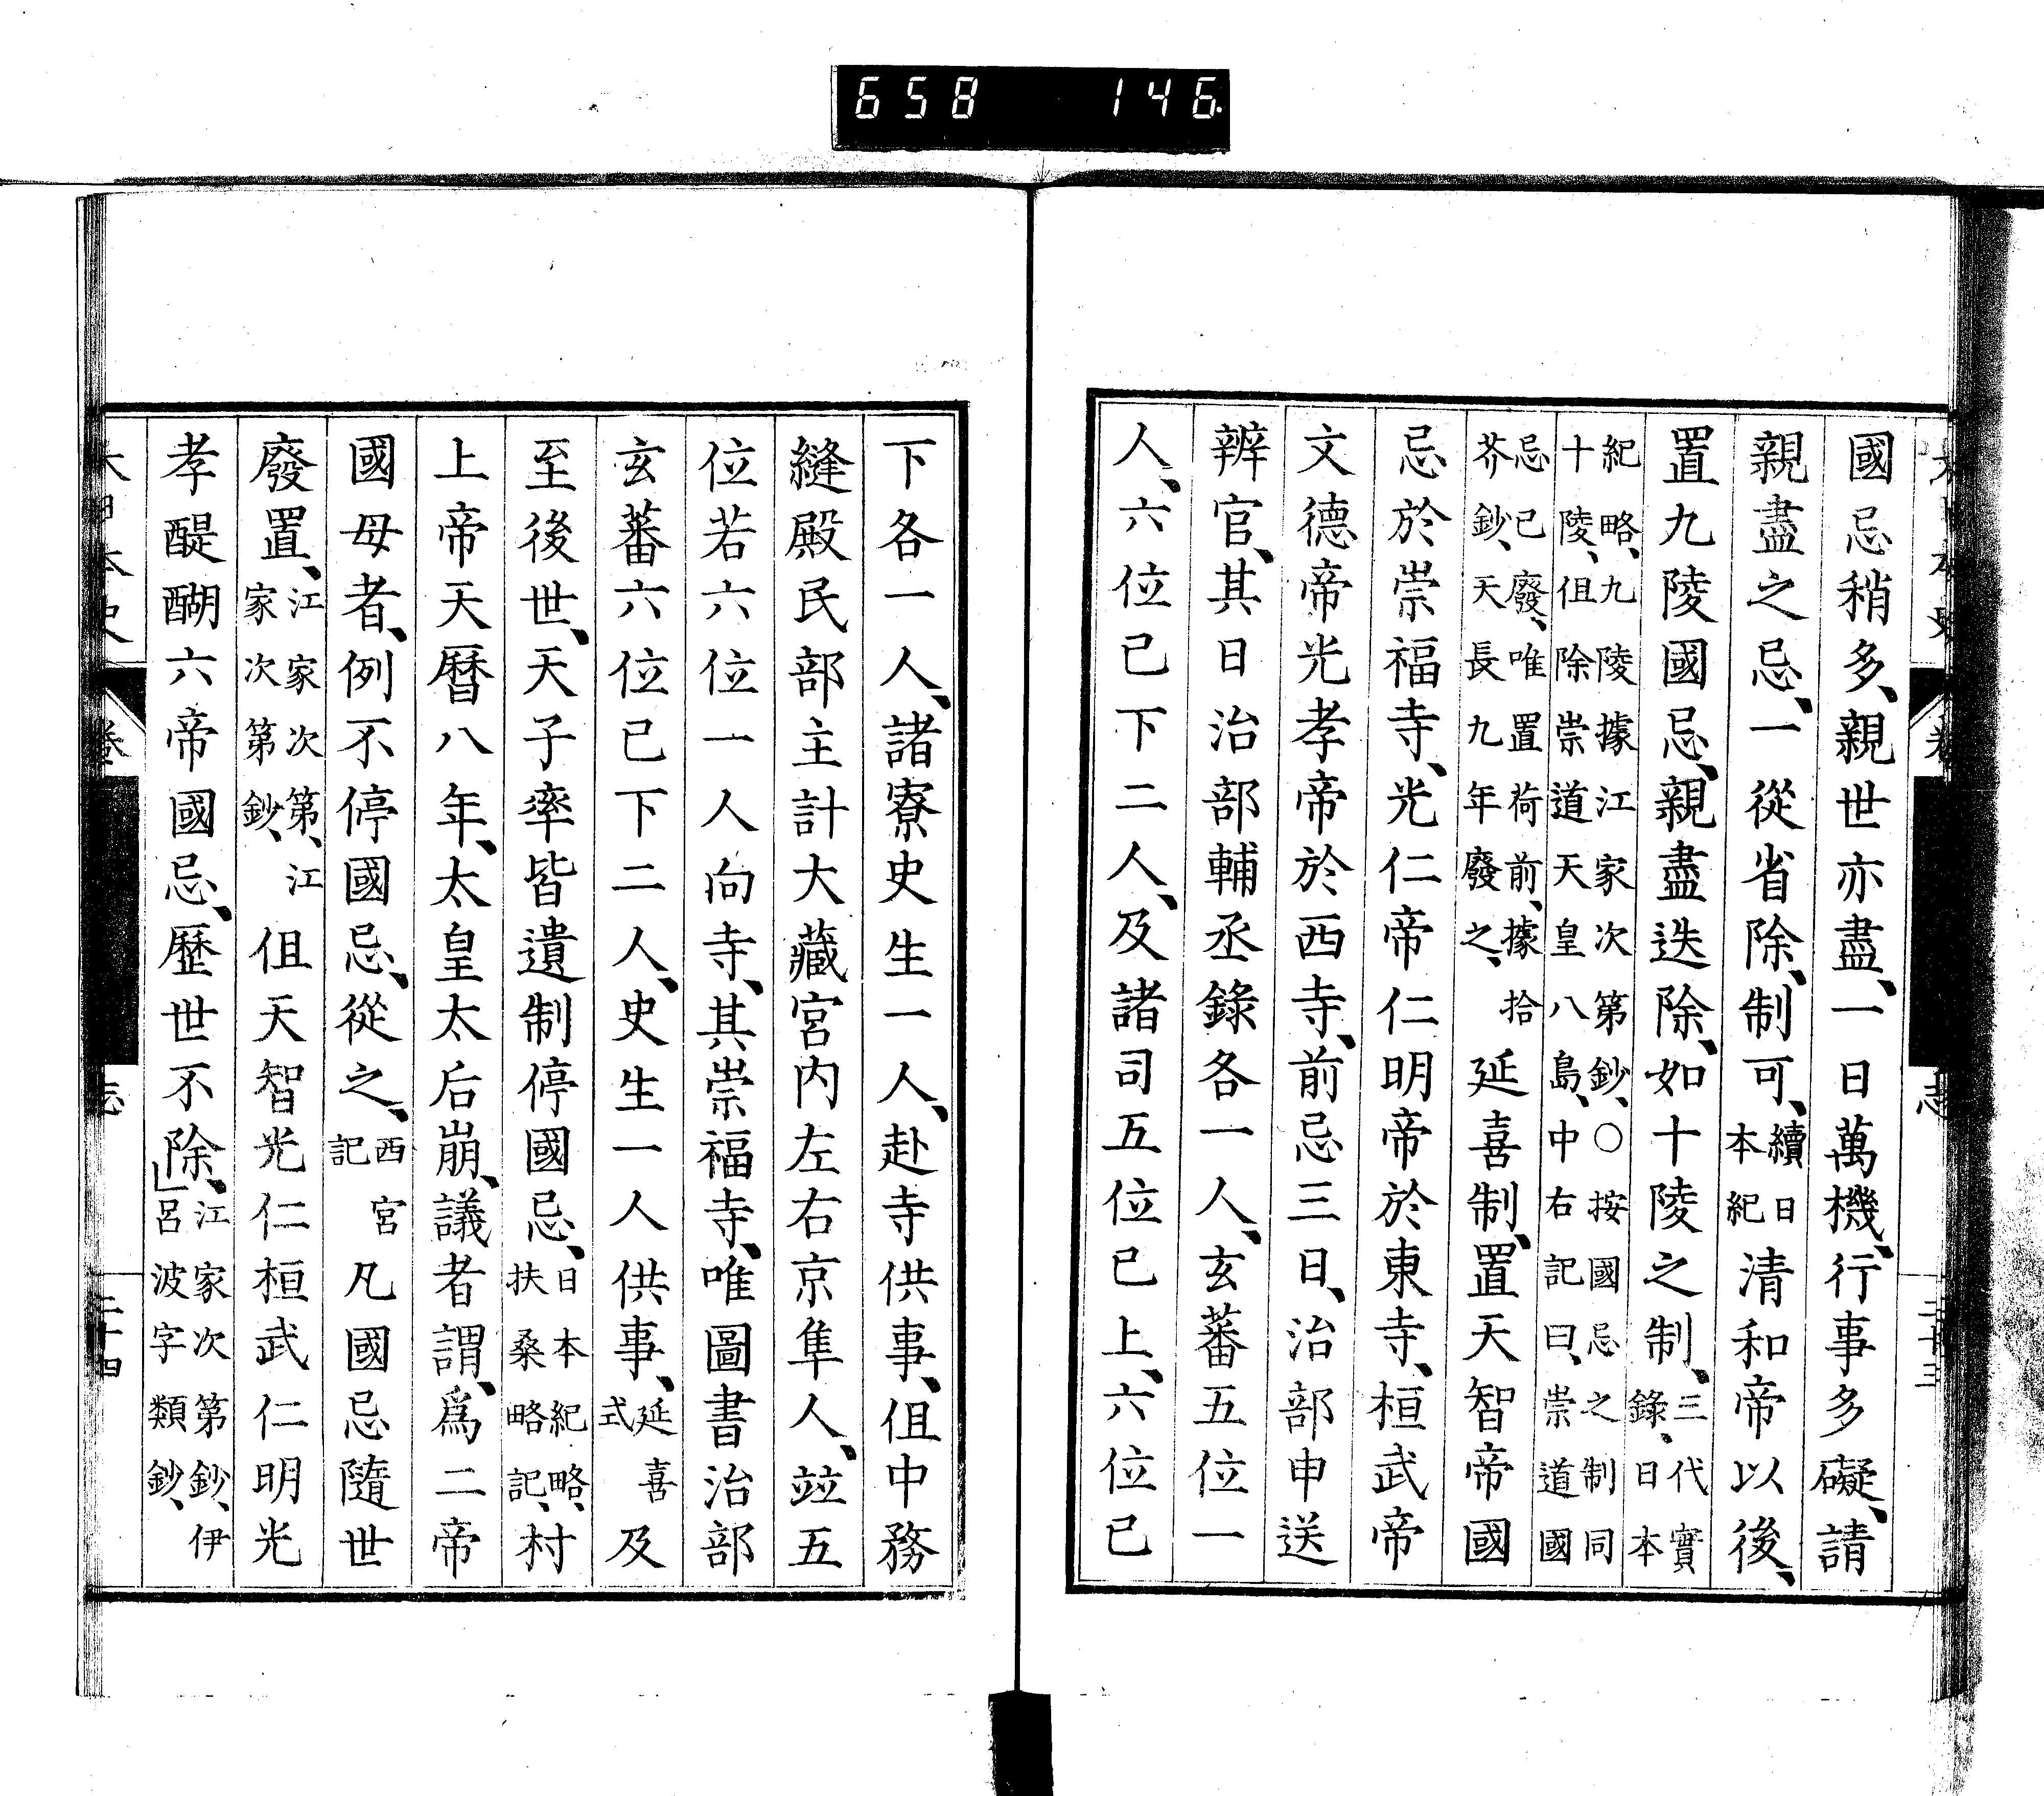 658 146
國忌稍多、親世亦盡、一日萬機、行事多礙、請
親盡之忌、一從省除、制可、續日本紀清和帝以後、
置九陵國忌、親盡迭除、如十陵之制、三代實錄、日本
紀略、九陵據江家次第鈔、○按國忌之制同
十陵、但除崇道天皇八島、中右記曰、崇道國
忌已廢、唯置荷前、據拾
芥鈔、天長九年廢之、延喜制、置天智帝國
忌於崇福寺、光仁帝仁明帝於東寺、桓武帝
文德帝光孝帝於西寺、前忌三日、治部申送
辨官、其日治部輔丞錄各一人、玄蕃五位一
人、六位已下二人、及諸司五位已上、六位已
下各一人、諸寮史生一人、赴寺供事、但中務
縫殿民部主計大藏宮内左右京隼人、竝五
位若六位一人向寺、其崇福寺、唯圖書治部
玄蕃六位已下二人、史生一人供事、延喜式及
至後世、天子率皆遺制停國忌、日本紀略、扶桑略記、村
上帝天曆八年、太皇太后崩、議者謂、爲二帝
國母者、例不停國忌、從之、西宮記凡國忌隨世
廢置、江家次第、江家次第鈔、但天智光仁桓武仁明光
孝醍醐六帝國忌、歷世不除、江家次第鈔、伊呂波字類鈔、
大日本史 卷 志 二十四